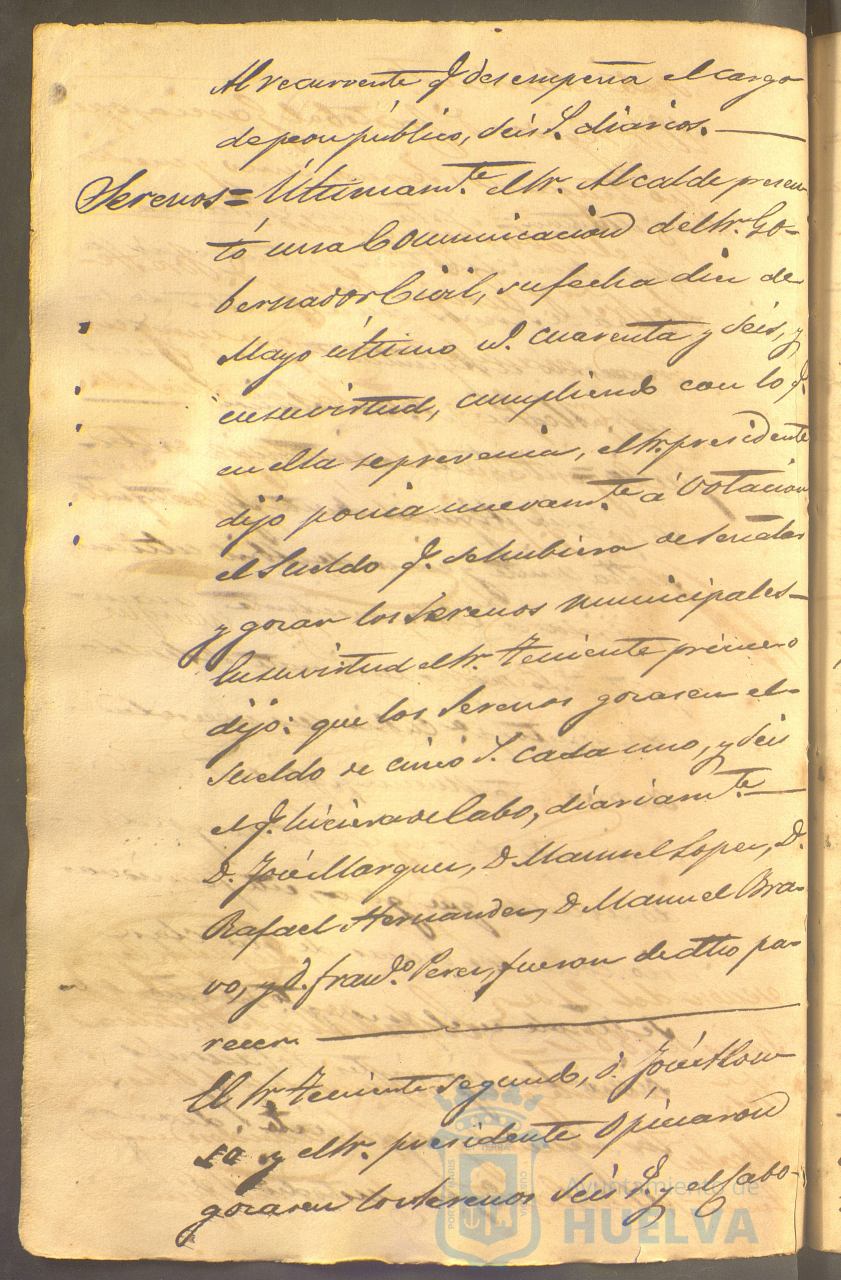 Al recurrente q.̃ desempeña el cargo
de peon público, seis r.̃ diarios.
Serenos = Ultimam.te el Sr. Alcalde presen-
tó una Comunicacion del Sr. Go-
bernador Civil, su fecha diez de
Mayo último n.º cuarenta y seis, y
en su virtud, cumpliendo con lo q.̃
en ella se prevenia, el Sr. presidente
dijo ponia nuevam.te á votacion
el Sueldo q.̃ se hubiera de señalar
y gozar los Serenos municipales-
En su virtud el Sr. Teniente primero
dijo: que los Serenos gozasen el-
sueldo de cinco r.̃ cada uno, y seis
el q.̃ hiciera de Cabo, diariam.te
D. José Marquez, D Manuel Lopez, D.
Rafael Hernandez, D Manuel Bra-
vo, y D. Fran.co Perez, fueron de dho pa-
recer.
El Sr. Teniente segundo, D. José Alon-
so y el Sr. presidente Opinaron
gozasen los Serenos seis r.̃ y el Cabo-
Ayuntamiento de
HUELVA